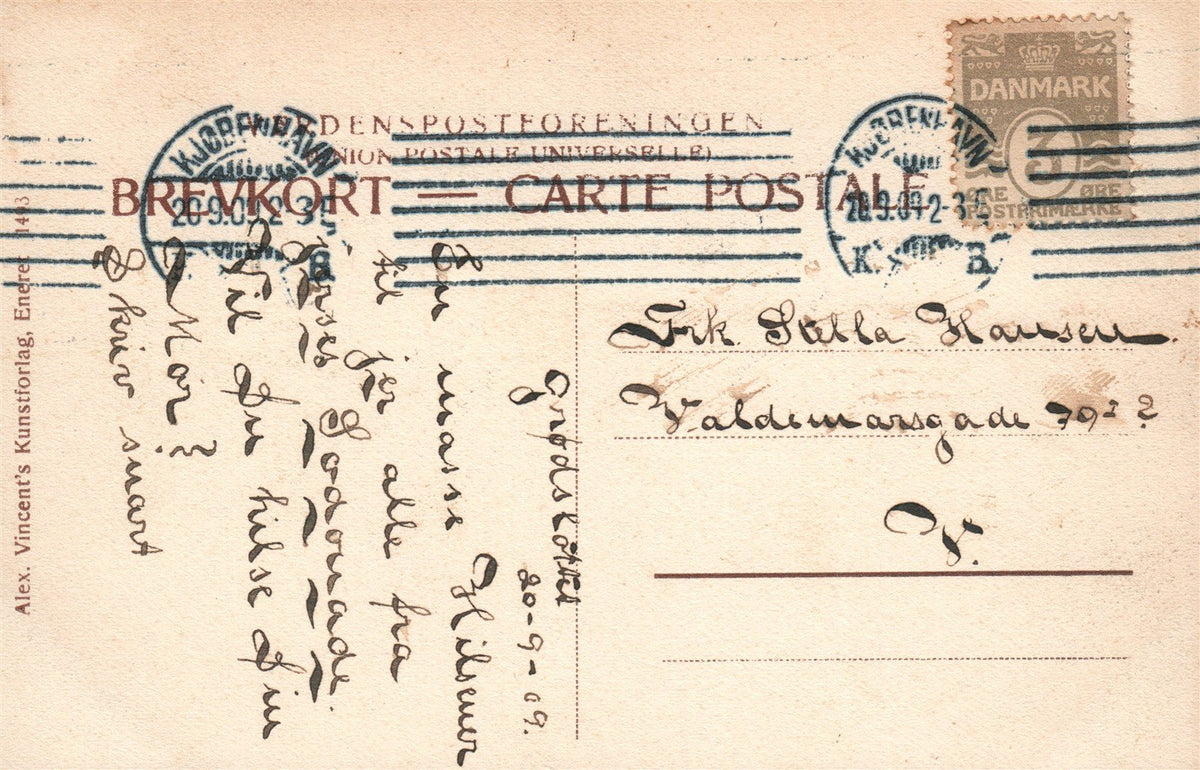 VERDENSPOSTFORENINGEN
(UNION POSTALE UNIVERSELLE)
BREVKORT — CARTE POSTALE
DANMARK
3
ØRE ØRE
POSTFRIMÆRKE
KJØBENHAVN
20.9.09 2-3 E
K. B.
KJØBENHAVN
20.9.09 2-3 E
K. B.
Frk. Stella Hansen.
Valdemarsgade 79² ?
V.
20-9-09.
En masse Hilsener
til jer alle fra
Vil Du hilse Din
Mor?
Skriv snart
Alex. Vincent's Kunstforlag, Eneret 1463